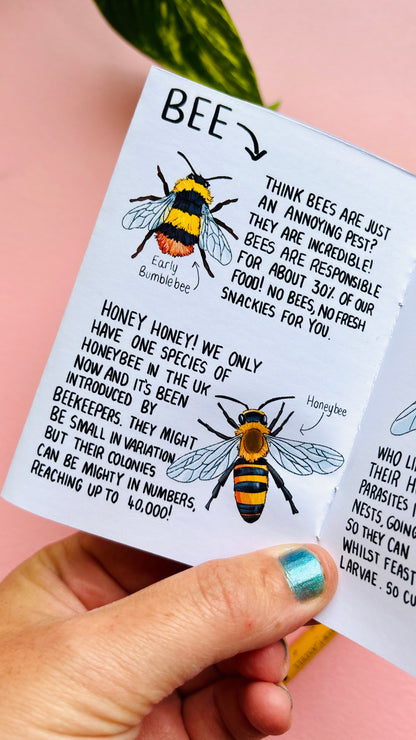 BEE
THINK BEES ARE JUST
AN ANNOYING PEST?
THEY ARE INCREDIBLE!
BEES ARE RESPONSIBLE
FOR ABOUT 30% OF OUR
FOOD! NO BEES, NO FRESH
SNACKIES FOR YOU.
Early
Bumblebee
HONEY HONEY! WE ONLY
HAVE ONE SPECIES OF
HONEYBEE IN THE UK
NOW AND IT'S BEEN
INTRODUCED BY
BEEKEEPERS. THEY MIGHT
BE SMALL IN VARIATION
BUT THEIR COLONIES
CAN BE MIGHTY IN NUMBERS,
REACHING UP TO 40,000!
Honeybee
WHO L
THEIR H
PARASITES I
NESTS, GOING
SO THEY CAN
WHILST FEAST
LARVAE. SO CU